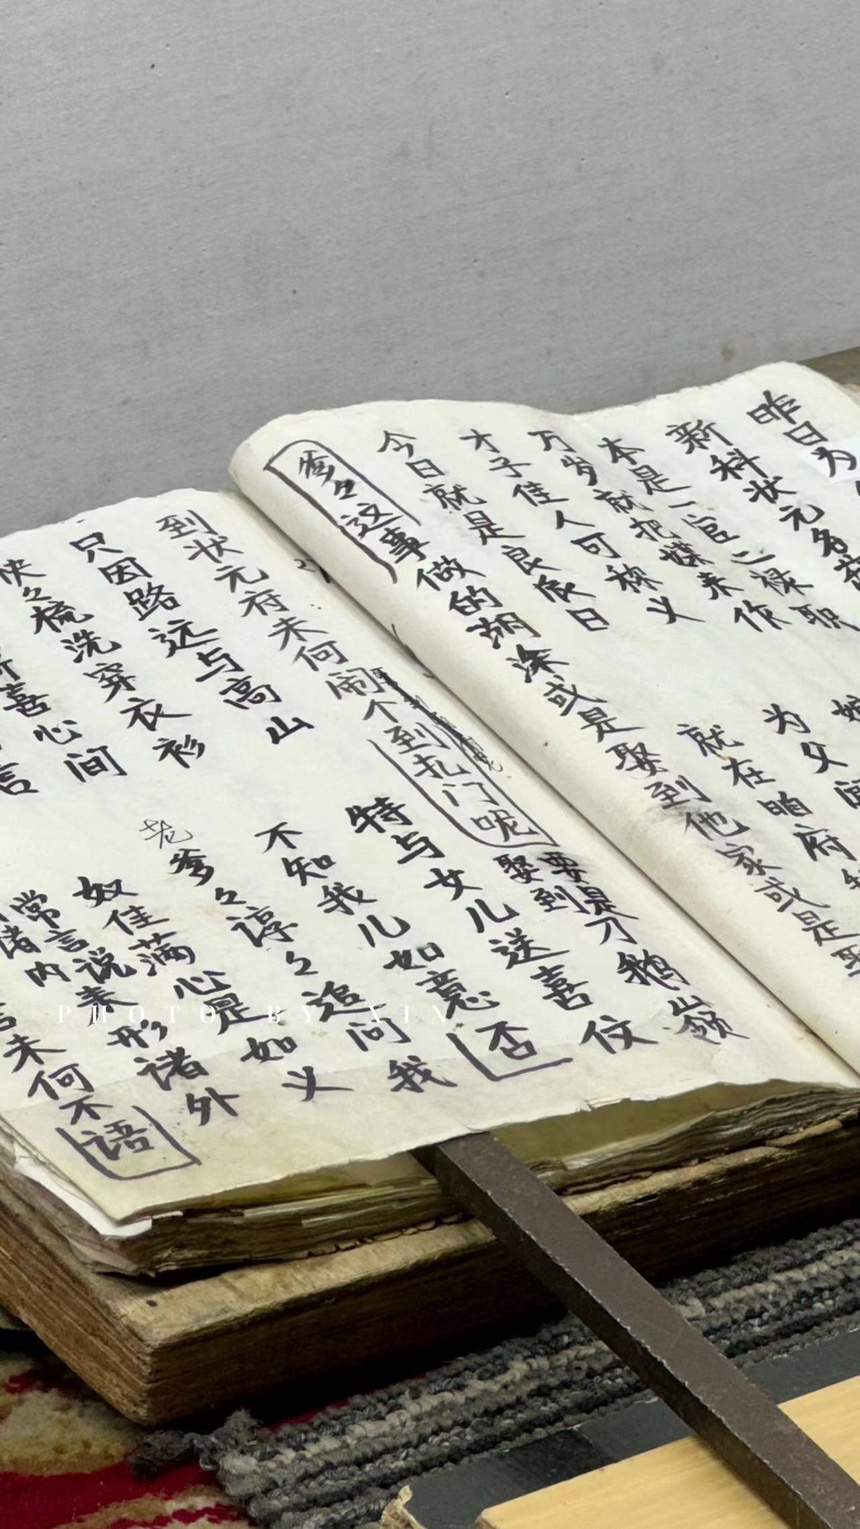 昨日为
新科状元名
本是一官二禄职
万岁就把媒来作
才子佳人可称义
今日就是良辰日
为父闻
就在咱府
爹々这事做的胡涂或是娶到他家或是娶
到状元府未何闹个到扎门呢
要是才鹅嶺
娶到
只因路远与高山
特与女儿送喜仗
快々梳洗穿衣衫
不知我儿如意否
喜心间
老爹々谆々追问我
言
奴佳满心是如义
常言说来形诸外
诸内
言未何不语
PHOTO BY XIN